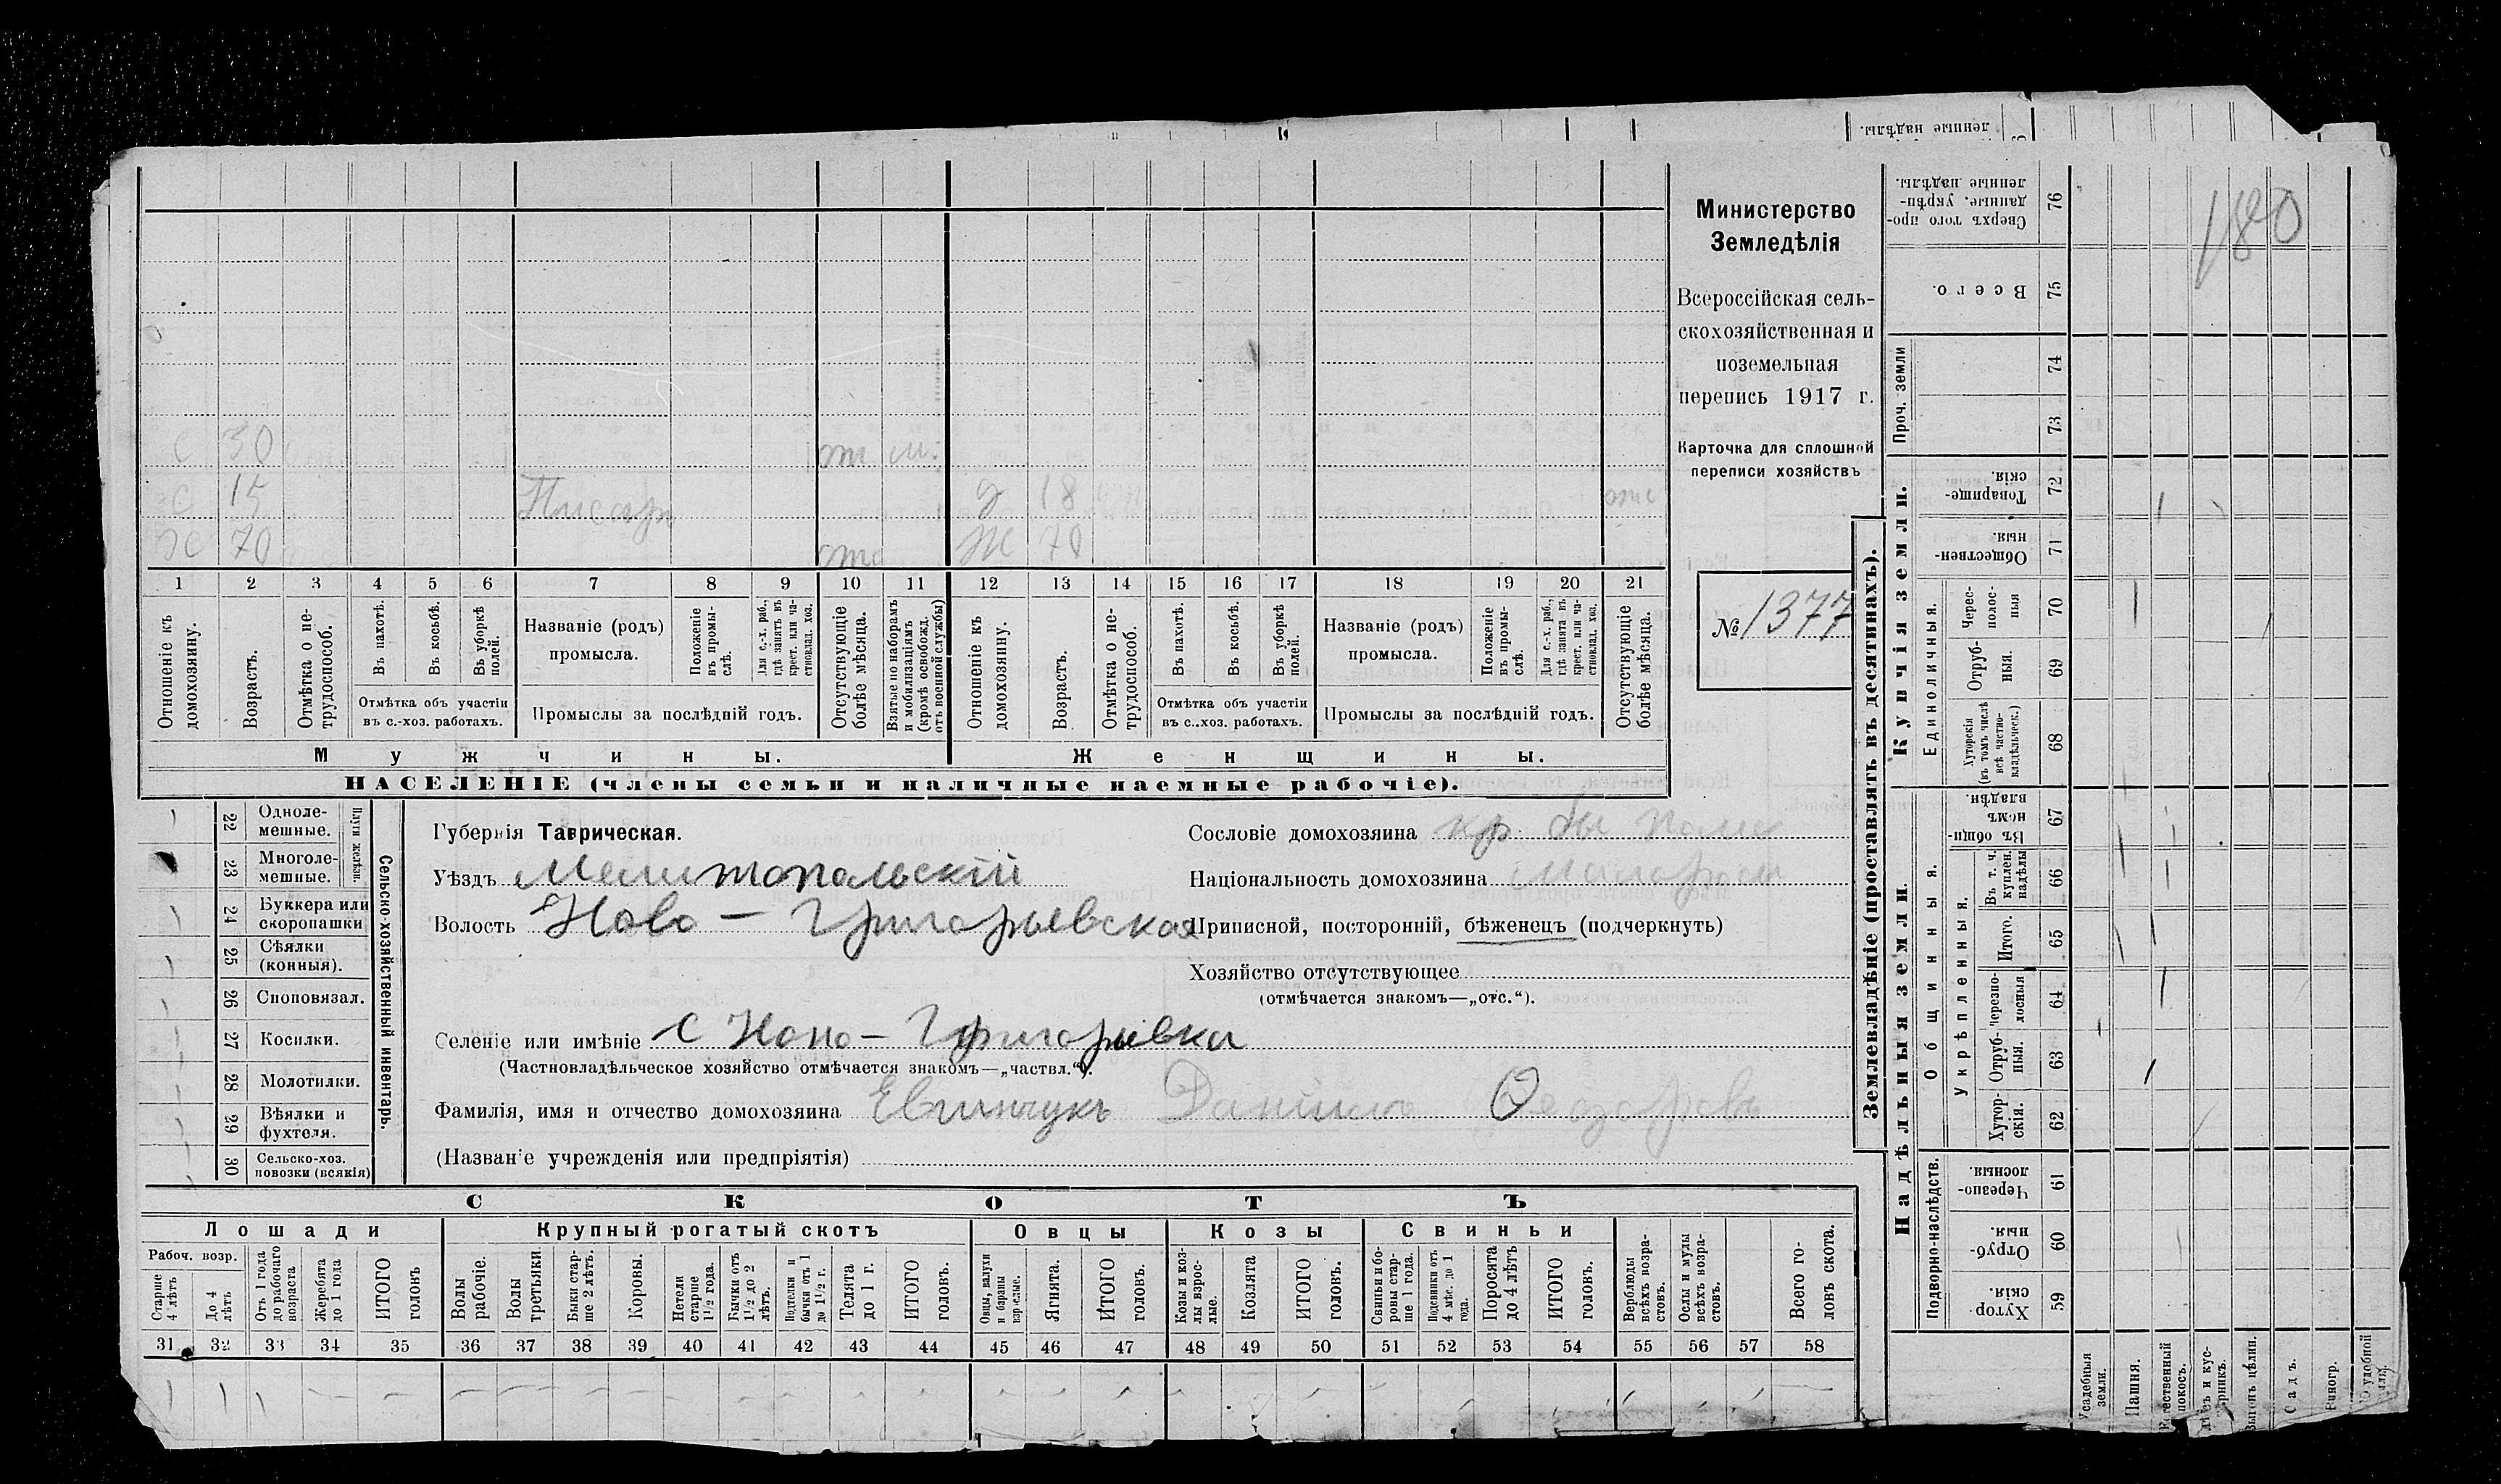 ленные надѣлы.
Министерство
Земледѣлія
Всероссійская сель-
скохозяйственная и
поземельная
перепись 1917 г.
Карточка для сплошной
переписи хозяйствъ
№ 1377
180
С 30 от м.
С 15 Писарь д 18 отс
Ж 70
1 2 3 4 5 6 7 8 9 10 11 12 13 14 15 16 17 18 19 20 21
Отношеніе къ домохозяину.
Возрастъ.
Отмѣтка о не-трудоспособ.
Въ пахотѣ.
Въ косьбѣ.
Въ уборкѣ полей.
Отмѣтка объ участіи
въ с.-хоз. работахъ.
Названіе (родъ)
промысла.
Положеніе въ промы-слѣ.
Для с.-х. раб., гдѣ занятъ въ крест. или ча-стновлад. хоз.
Промыслы за послѣдній годъ.
Отсутствующіе болѣе мѣсяца.
Взятые по наборамъ и мобилизаціямъ (кромѣ освобожд. отъ военной службы)
Отношеніе къ домохозяину.
Возрастъ.
Отмѣтка о не-трудоспособ.
Въ пахотѣ.
Въ косьбѣ.
Въ уборкѣ полей.
Отмѣтка объ участіи
въ с.-хоз. работахъ.
Названіе (родъ)
промысла.
Положеніе въ промы-слѣ.
Для с.-х. раб., гдѣ занята въ крест. или ча-стновлад. хоз.
Промыслы за послѣдній годъ.
Отсутствующіе болѣе мѣсяца.
Мужчины. Женщины.
НАСЕЛЕНІЕ (члены семьи и наличные наемные рабочіе).
22 Одноле-мешные.
23 Многоле-мешные.
Плуги желѣзн.
24 Буккера или скоропашки
25 Сѣялки (конныя).
26 Сноповязал.
27 Косилки.
28 Молотилки.
29 Вѣялки и фухтеля.
30 Сельско-хоз. повозки (всякія)
Сельско-хозяйственный инвентарь.
Губернія Таврическая.
Уѣздъ Мелитопольскій
Волость Ново-Григорьевская
Сословіе домохозяина кр.
Національность домохозяина Малоросъ
Приписной, посторонній, бѣженецъ (подчеркнуть)
Хозяйство отсутствующее
(отмѣчается знакомъ—„отс.“).
Селеніе или имѣніе с Ново-Григорьевка
(Частновладѣльческое хозяйство отмѣчается знакомъ—„частвл.“).
Фамилія, имя и отчество домохозяина Евтинчукъ Даніилъ
(Названіе учрежденія или предпріятія)
СКОТЪ
Лошади Крупный рогатый скотъ Овцы Козы Свиньи
Рабоч. возр.
Старше 4 лѣтъ
До 4 лѣтъ
Отъ 1 года до рабочаго возраста
Жеребята до 1 года
ИТОГО головъ
Волы рабочіе.
Волы третьяки.
Быки стар-ше 2 лѣтъ.
Коровы.
Нетели старше 1½ года.
Бычки отъ 1½ до 2 лѣтъ.
Подтелки и бычки отъ 1 до 1½ г.
Телята до 1 г.
ИТОГО головъ.
Овцы, валухи и бараны взрослые.
Ягнята.
ИТОГО головъ.
Козы и коз-лы взрос-лые.
Козлята
ИТОГО головъ.
Свиньи и бо-ровы стар-ше 1 года.
Подсвинки отъ 4 мѣс. до 1 года.
Поросята до 4 лѣтъ
ИТОГО головъ.
Верблюды всѣхъ возра-стовъ.
Ослы и мулы всѣхъ возра-стовъ.
Всего го-ловъ скота.
31 32 33 34 35 36 37 38 39 40 41 42 43 44 45 46 47 48 49 50 51 52 53 54 55 56 57 58
Землевладѣніе (проставлять въ десятинахъ).
Надѣльныя земли. Купчія земли.
Проч. земли
Подворно-наслѣдств.
Общинныя.
Укрѣпленныя.
Единоличныя.
Хутор-скія. 59
Отруб-ныя. 60
Черезпо-лосныя. 61
Хутор-скія. 62
Отруб-ныя. 63
Черезпо-лосныя 64
Итого. 65
Въ т. ч. куплен. надѣлы 66
Въ общин-номъ владѣн. 67
Хуторскія (въ томъ числѣ всѣ частно-владѣльческ.) 68
Отруб-ныя. 69
Черес-полос-ныя 70
Обществен-ныя. 71
Товарище-скія. 72
73
74
Всего. 75
Сверхъ того про-данные, укрѣп-ленные надѣлы. 76
Усадебныя земли.
Пашня.
Естественный покосъ.
Лѣсъ и кус-тарникъ.
Выгонъ цѣлин.
Садъ.
Виногр.